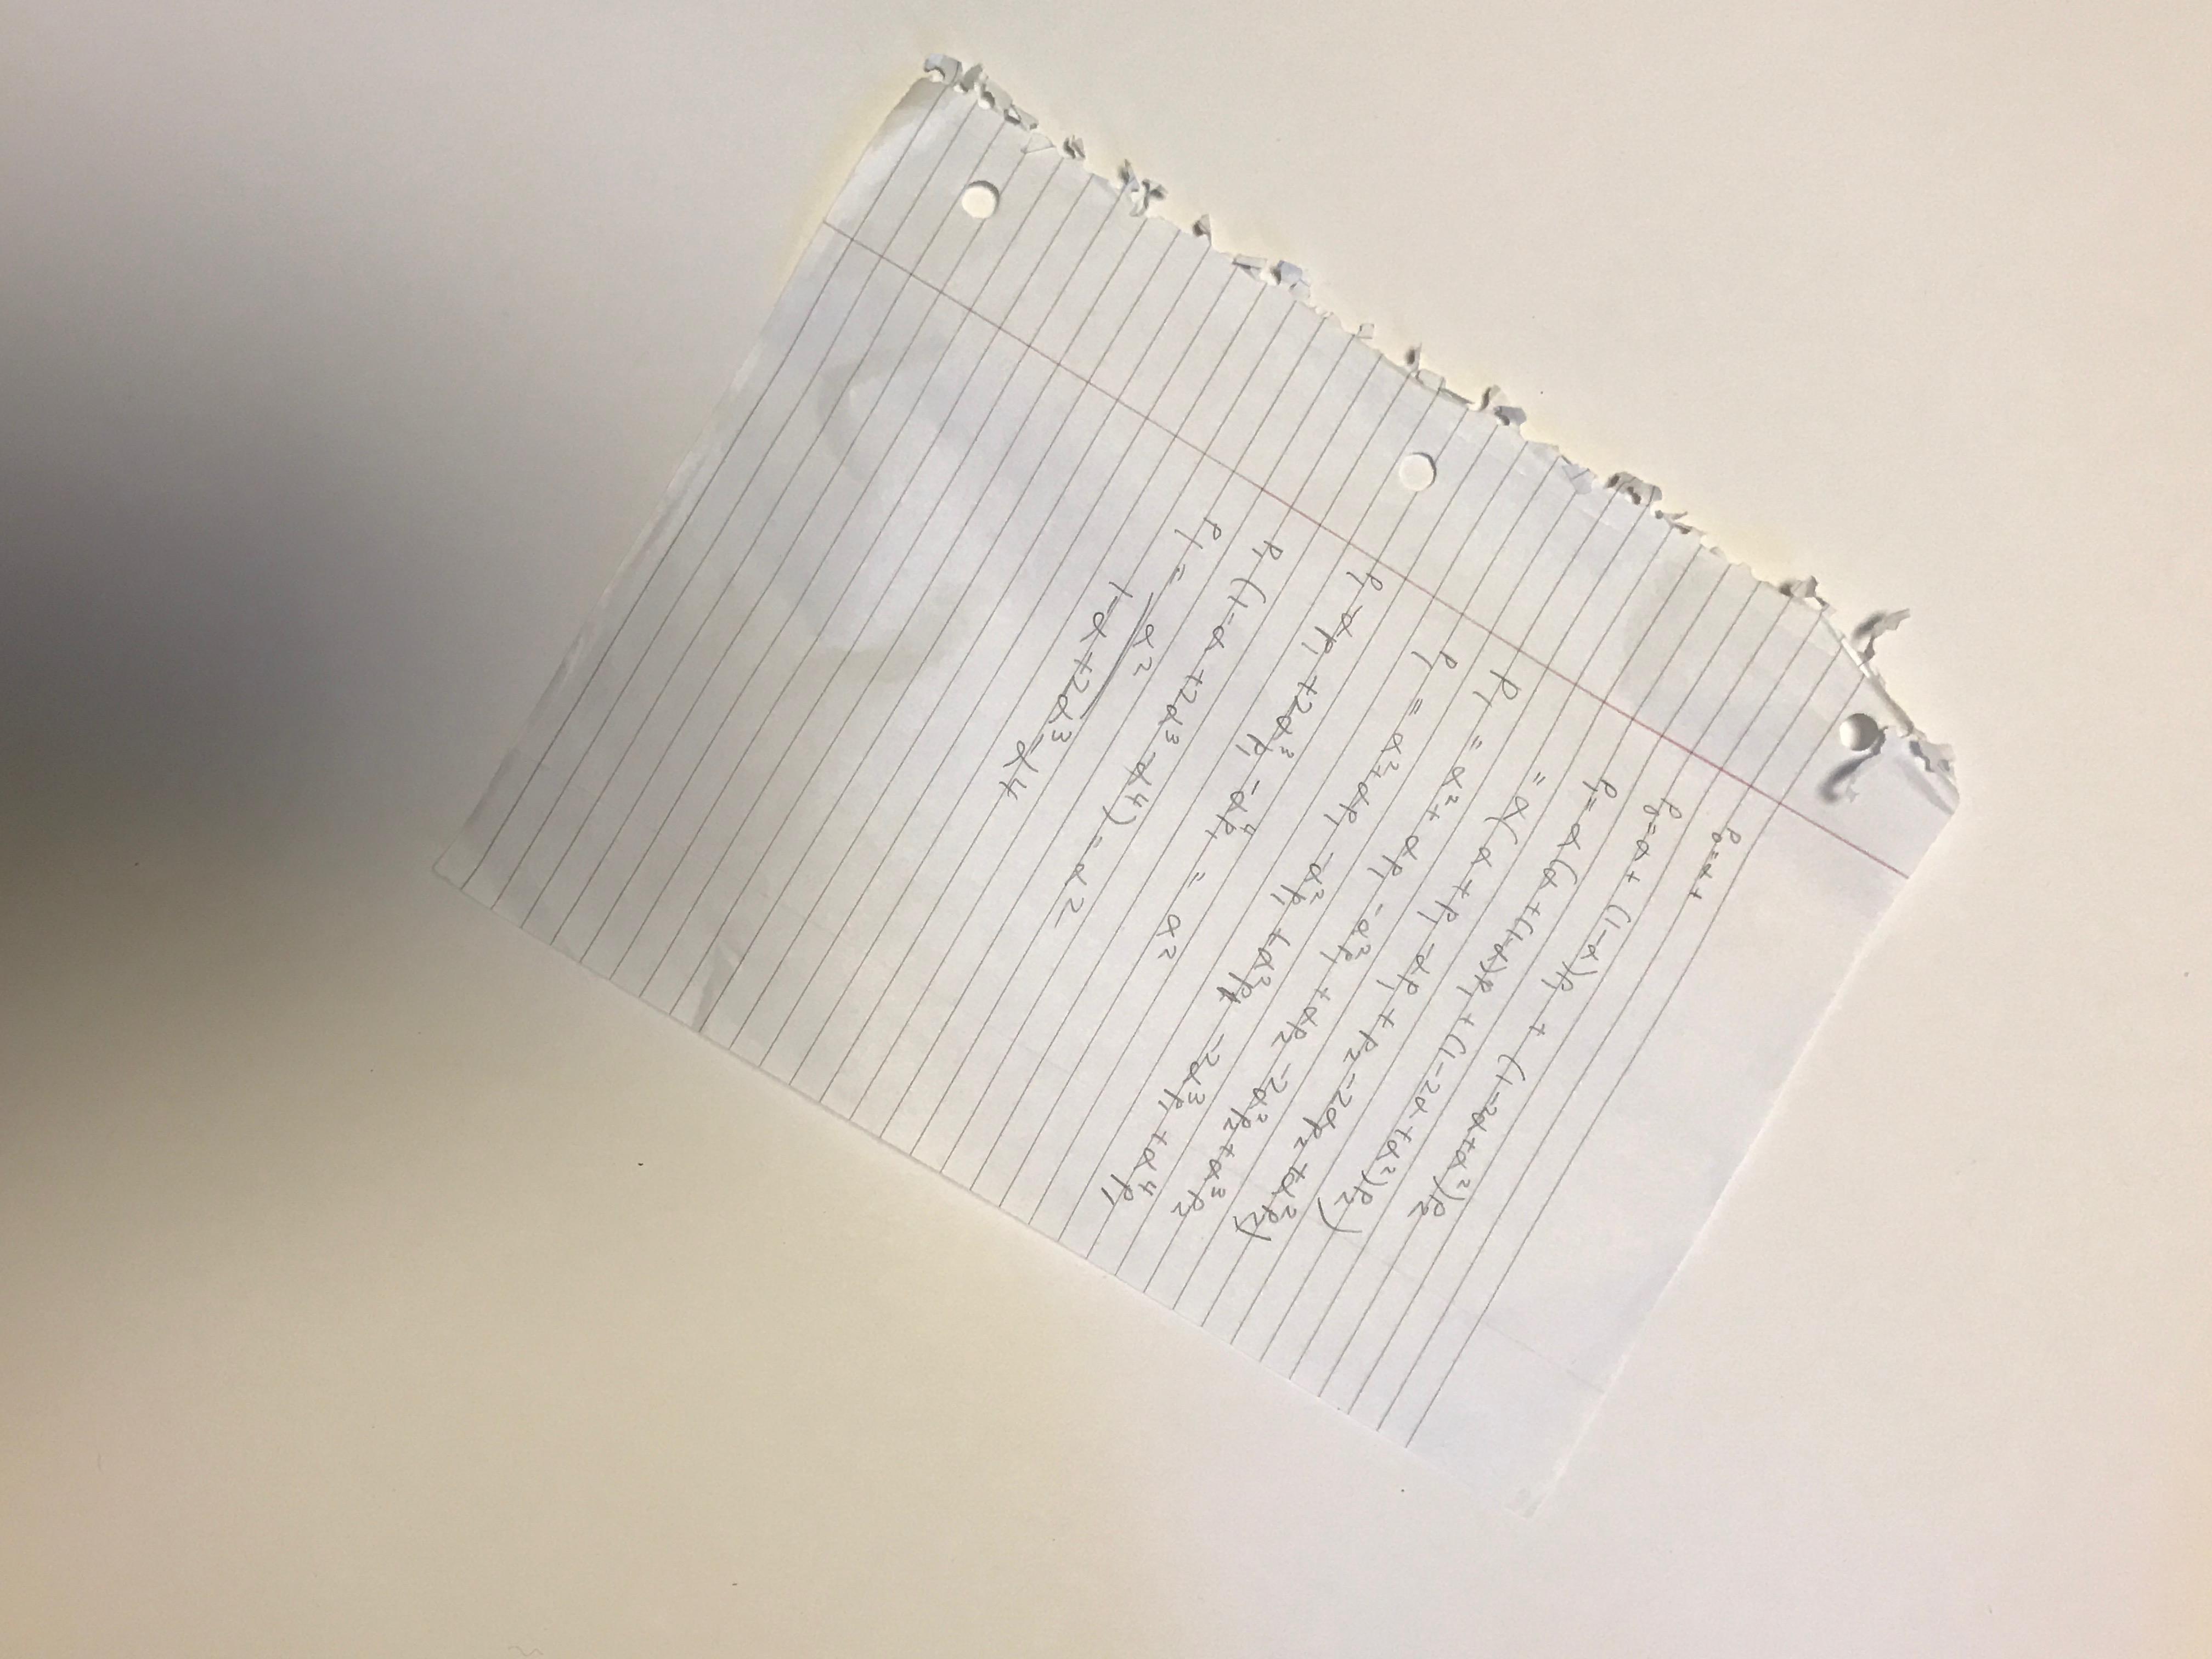 P₀ = α +
P₀ = α + (1-α)P₁ + (1-2α+α²)P₂
P₁ = α(α + (1-α)P₁ + (1-2α+α²)P₂)
= α(α + P₁ - αP₁ + P₂ - 2αP₂ + α²P₂)
P₁ = α² + αP₁ - α²P₁ + αP₂ - 2α²P₂ + α³P₂
P₁ = α² + αP₁ - α²P₁ + α²P₁ - 2α³P₁ + α⁴P₁
P₁ - αP₁ + 2α³P₁ - α⁴P₁ = α²
P₁ (1 - α + 2α³ - α⁴) = α²
P₁ = α²
1-α+2α³-α⁴